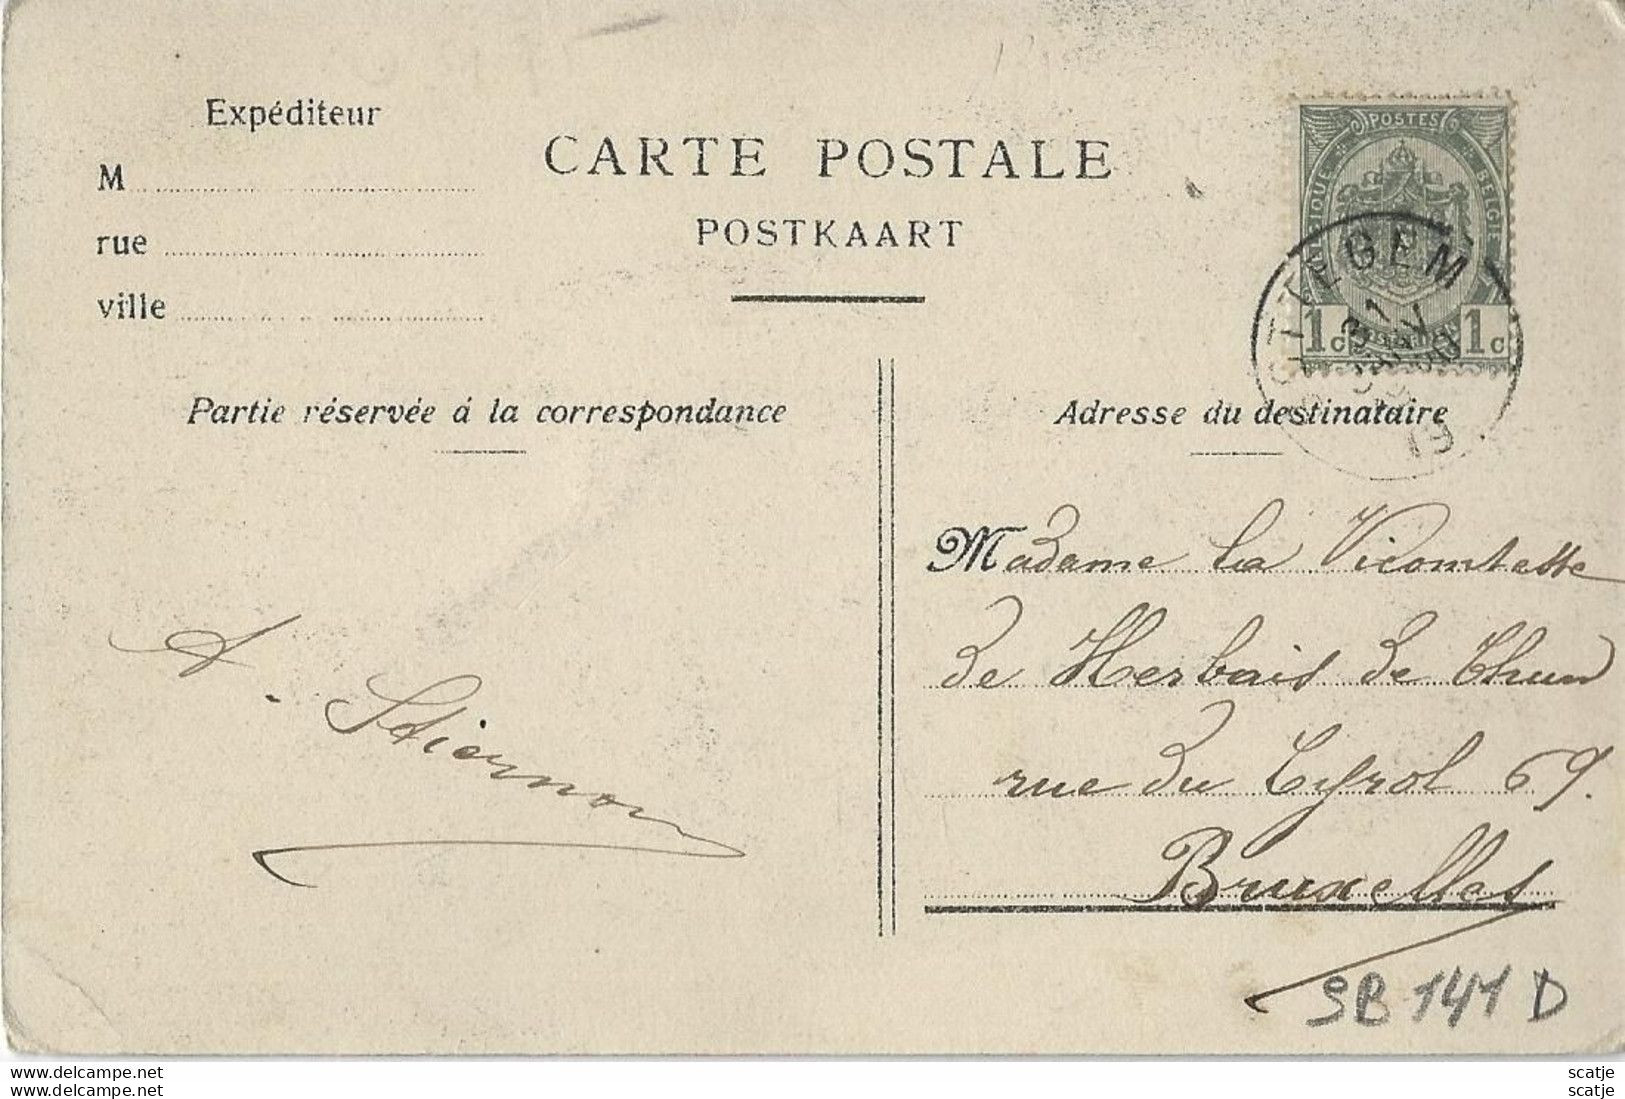 Expéditeur
M
rue
ville
CARTE POSTALE
POSTKAART
POSTES
BELGIQUE
BELGIE
1c 1c
GEM
31
Partie réservée á la correspondance
Adresse du destinataire
A. Stiernon
Madame la Vicomtesse
de Herbais de Thun
rue du Tyrol 69.
Bruxelles
SB 141 D
www.delcampe.net
www.delcampe.net
scatje
scatje